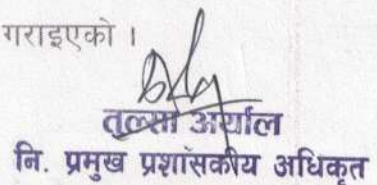 गराइएको ।
तुल्सा अर्याल
नि. प्रमुख प्रशासकीय अधिकृत